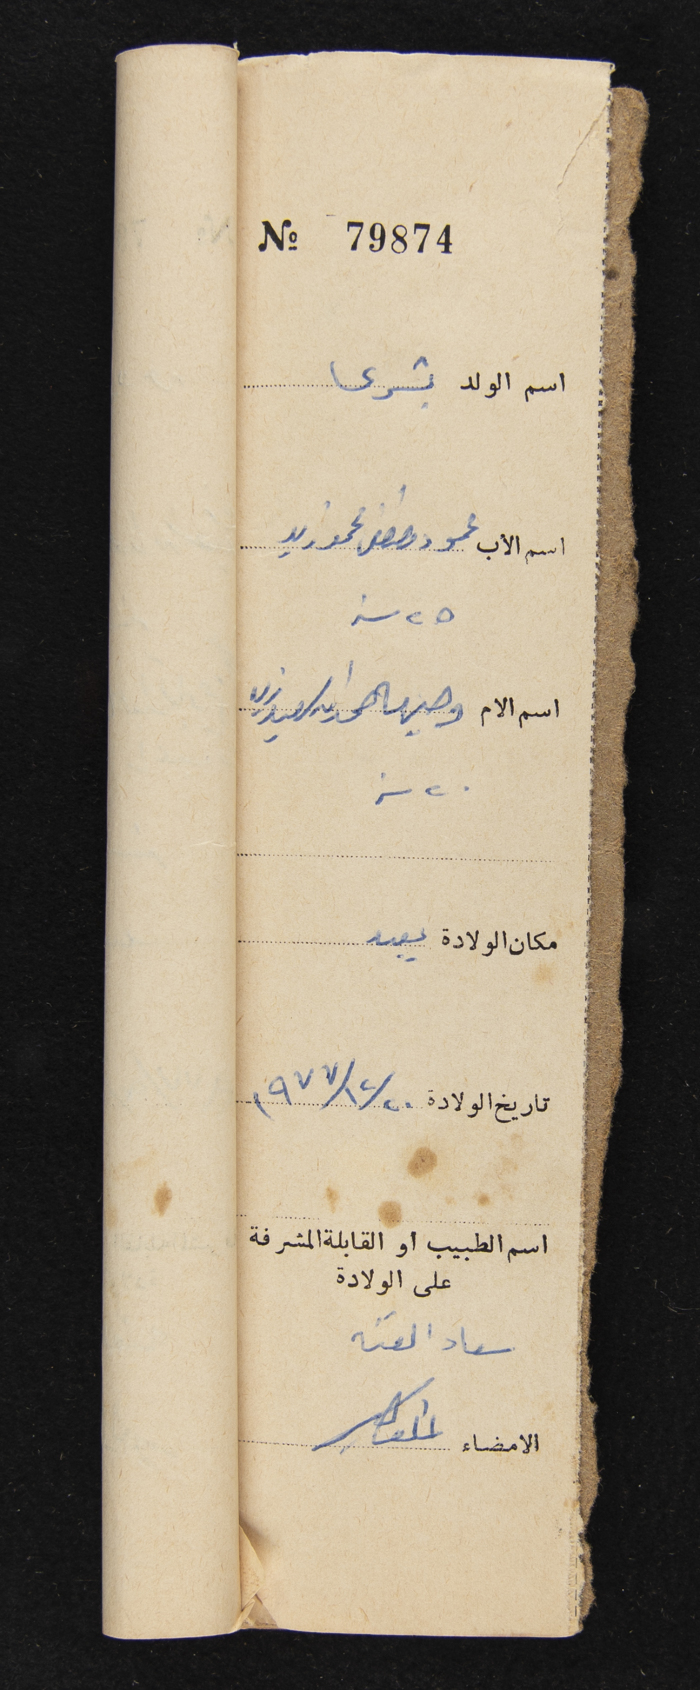 № 79874
اسم الولد بشرى
اسم الأب محمود مصطفى محمود زيد
٢٥ سنة
اسم الام وجيهه احمد اسعيد زيد
٢٠ سنة
مكان الولادة يعبد
تاريخ الولادة ٢٠/١٢/١٩٧٧
اسم الطبيب او القابلة المشرفة
على الولادة
سعاد
الامضاء